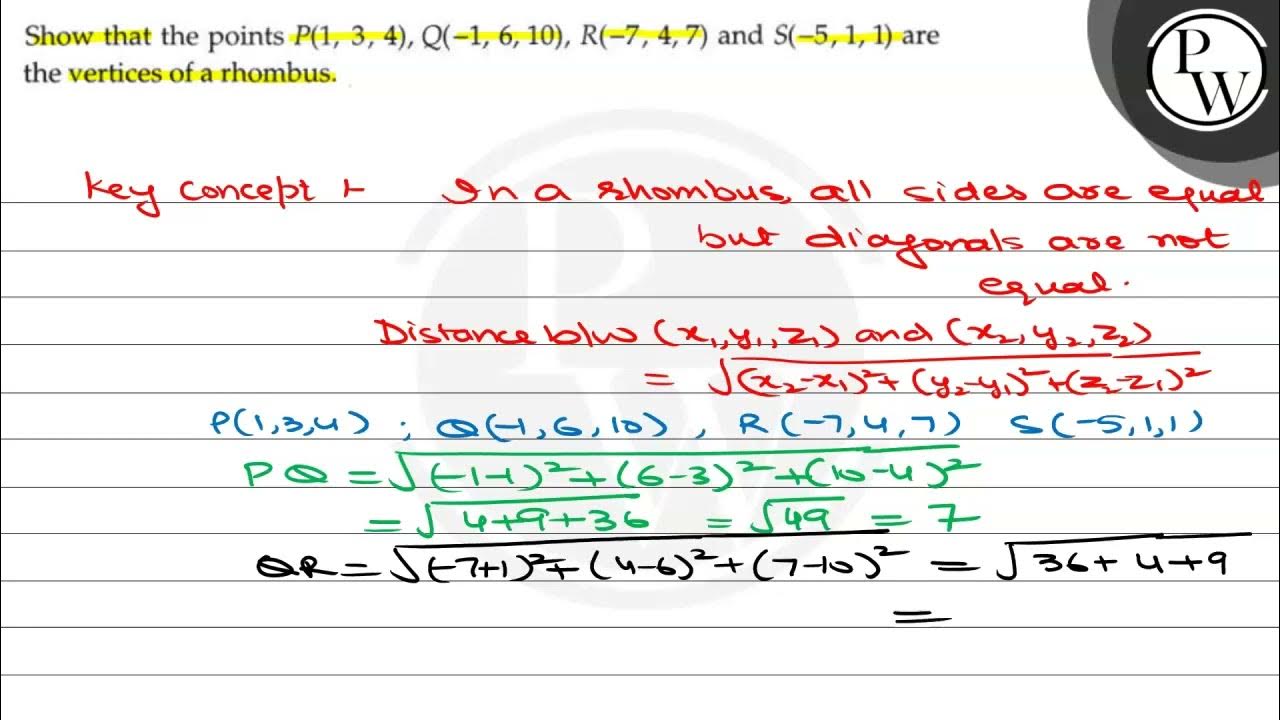 Show that the points P(1, 3, 4), Q(–1, 6, 10), R(–7, 4, 7) and S(–5, 1, 1) are
the vertices of a rhombus.
PW
Key concept :- In a rhombus, all sides are equal
but diagonals are not
equal.
Distance b/w (x₁,y₁,z₁) and (x₂,y₂,z₂)
= √(x₂-x₁)²+(y₂-y₁)²+(z₂-z₁)²
P(1,3,4) ; Q(-1,6,10), R(-7,4,7) S(-5,1,1)
PQ = √(-1-1)²+(6-3)²+(10-4)²
= √4+9+36 = √49 = 7
QR = √(-7+1)²+(4-6)²+(7-10)² = √36+4+9
=